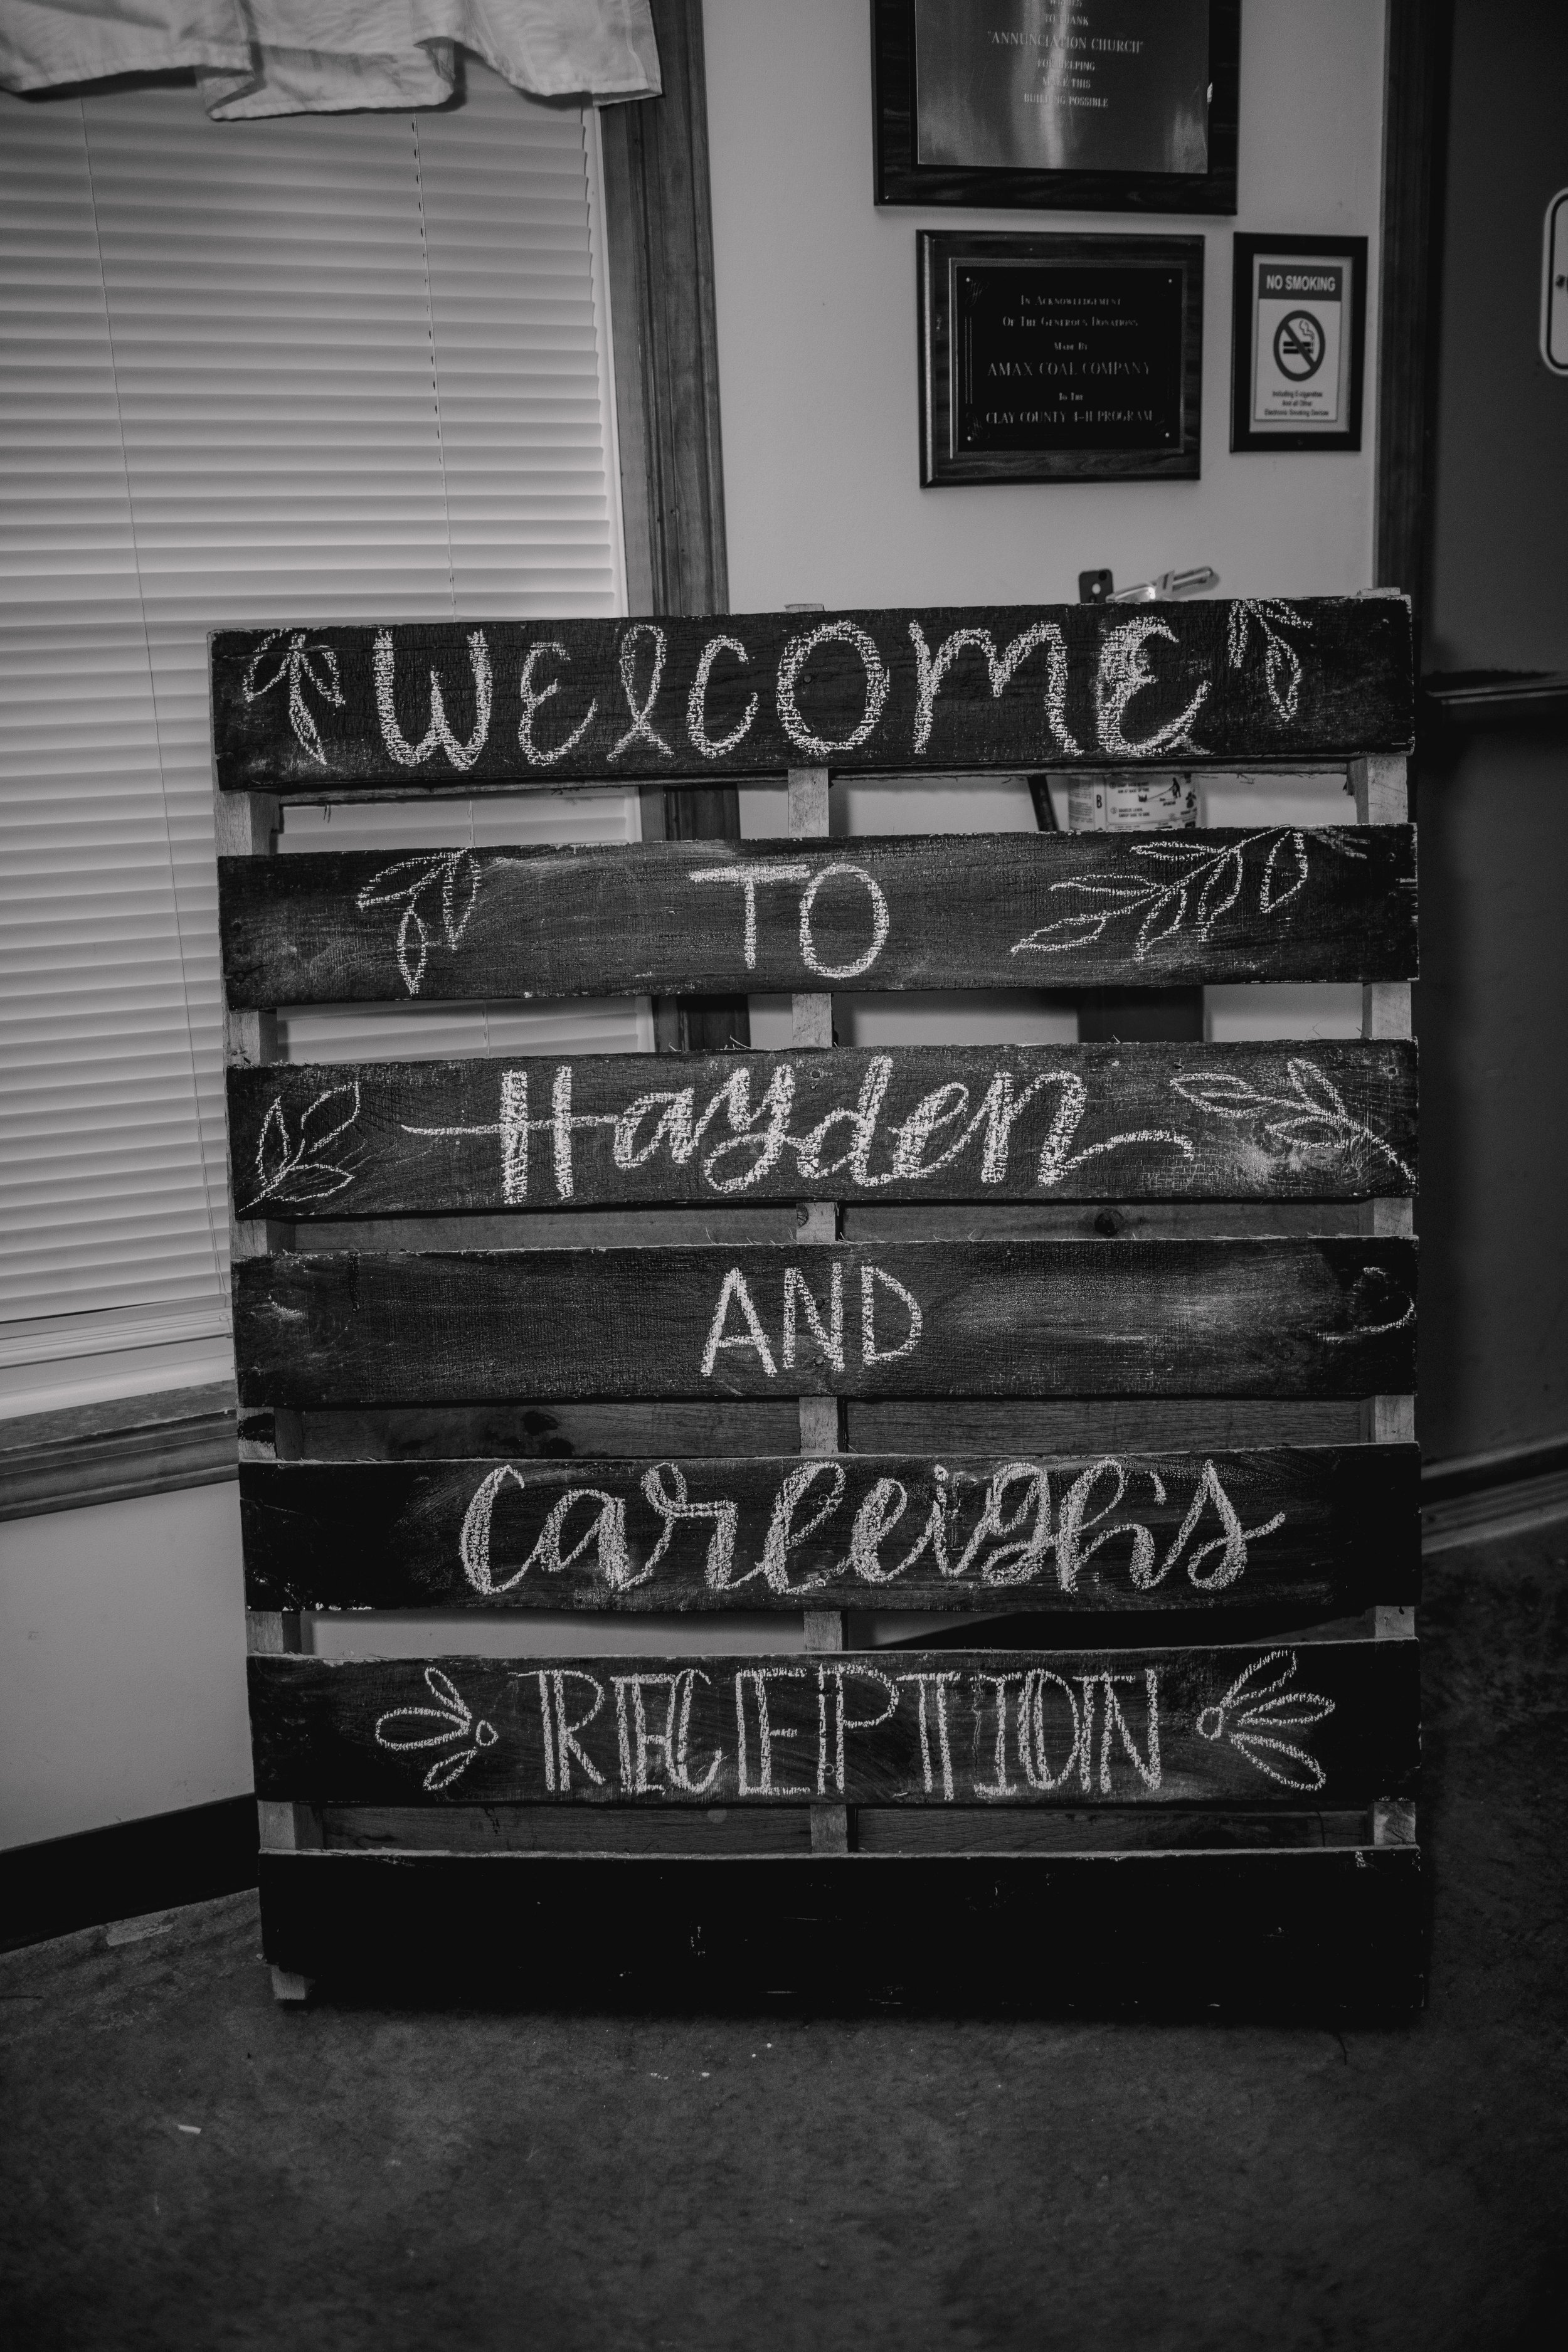 TO THANK
"ANNUNCIATION CHURCH"
FOR HELPING
MAKE THIS
BUILDING POSSIBLE
In Acknowledgement
Of The Generous Donations
Made By
AMAX COAL COMPANY
To The
CLAY COUNTY 4-H PROGRAM
NO SMOKING
Including E-cigarettes
And all Other
Electronic Smoking Devices
WElCOME
B
TO
Hayden
AND
Carleigh's
RECEPTION